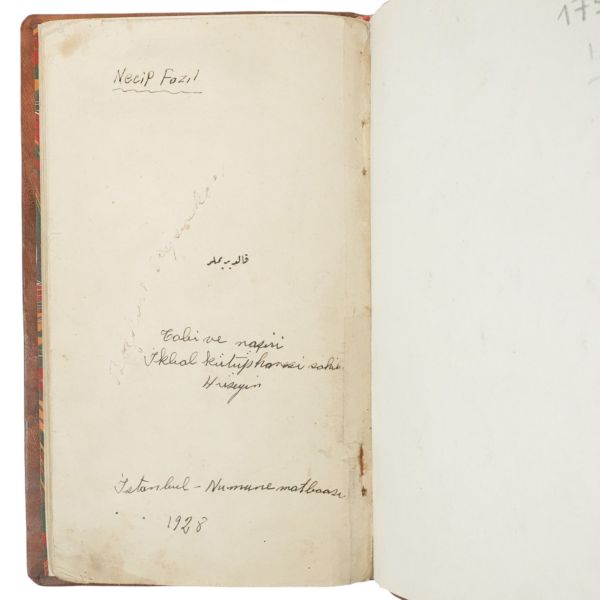 175
Necip Fazıl
قالدیریملر
Tabi ve naşiri
İkbal kütüphanesi sahibi
Hüseyin
İstanbul - Numune matbaası
1928